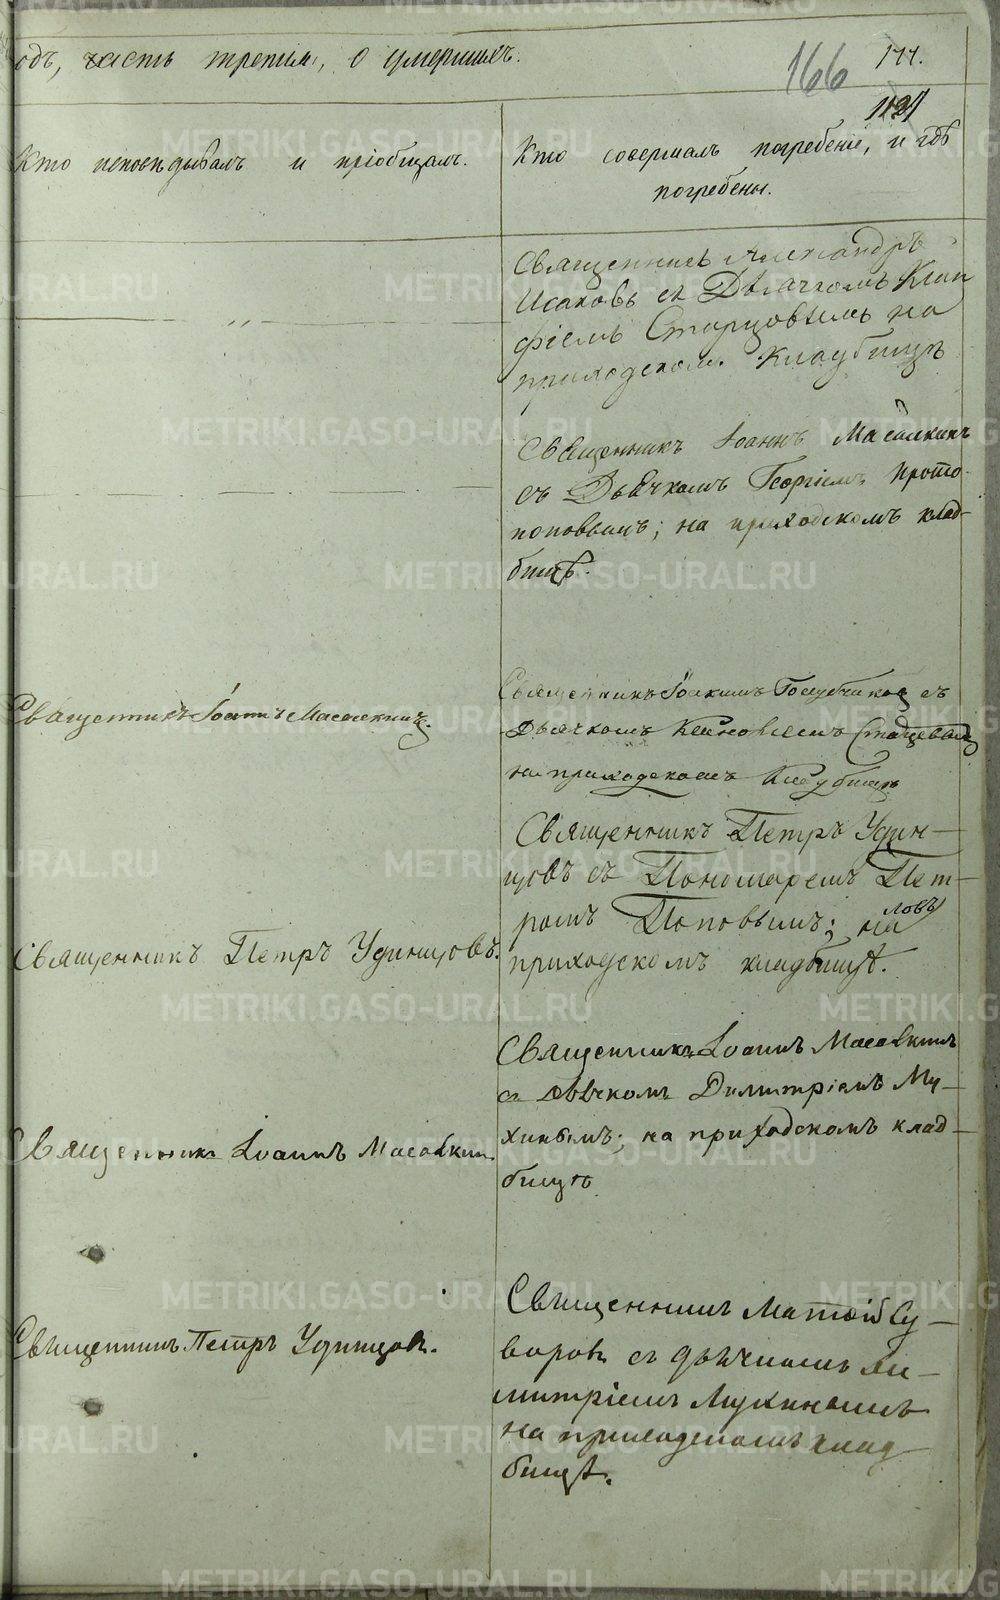 одъ, часть третія, о умершихъ.
166
177.
1121
Кто исповѣдывалъ и пріобщалъ.
Кто совершалъ погребеніе, и гдѣ
погребены.
Священникъ Александръ
Исаковъ съ Дьячкомъ
Старцовымъ на
приходском. Кладбищѣ
Священникъ Іоаннъ Масалкинъ
съ Дьячкомъ Георгіемъ Прото-
поповымъ; на приходскомъ клад-
бищѣ.
Священникъ Іоаннъ Масалкинъ.
Священникъ Іоакимъ Голубчиков съ
Дьячкомъ
на приходскомъ Кладбищѣ
Священникъ Петръ Удин-
цовъ съ Пономаремъ Пет-
ромъ Поповымъ; на
ловъ
приходскомъ кладбищѣ.
Священникъ Петръ Удинцовъ.
Священникъ Іоаннъ Масалкинъ
съ дьячкомъ Димитріемъ Му-
хинымъ; на приходскомъ клад-
бищѣ
Священникъ Іоаннъ Масалкин
Священникъ Матѳій Су-
воровъ съ дьячкомъ Ди-
митріемъ Мухинымъ
на приходскомъ клад-
бищѣ.
Священникъ Петръ Удинцовъ.
METRIKI.GASO-URAL.RU